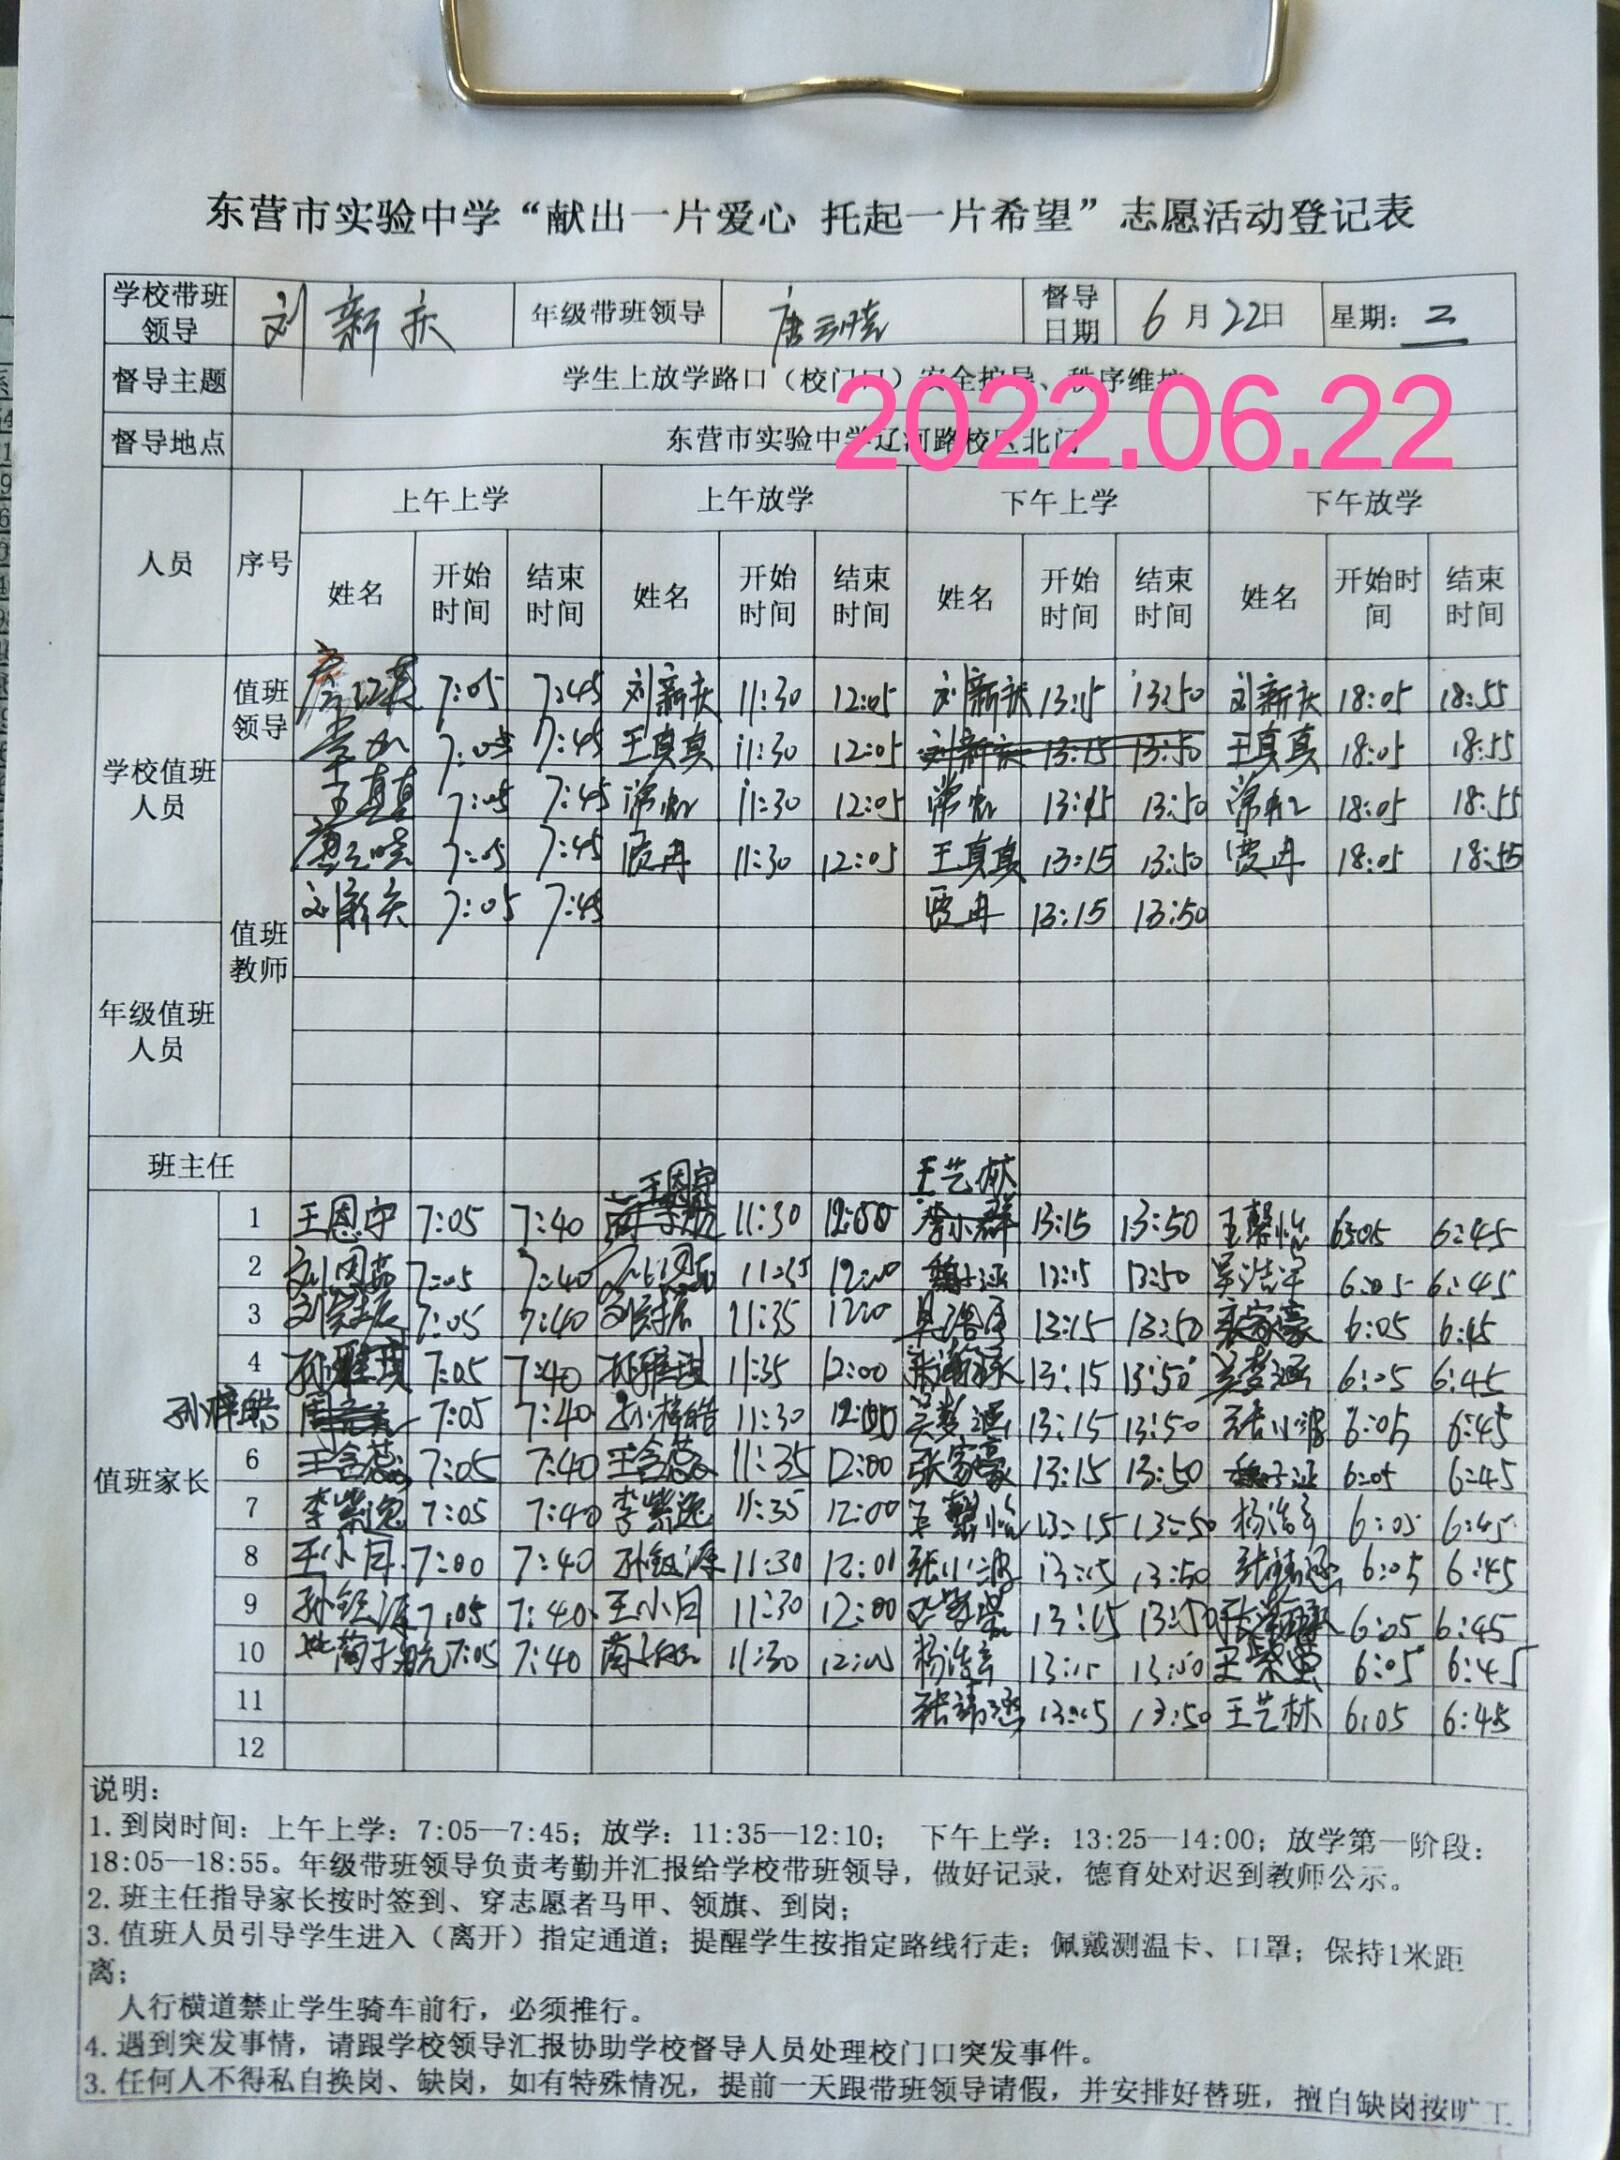 东营市实验中学“献出一片爱心 托起一片希望”志愿活动登记表
学校带班领导 刘新庆 年级带班领导 唐云晓 督导日期 6月22日 星期：三
督导主题 学生上放学路口（校门口）安全护导、秩序维护
2022.06.22
督导地点 东营市实验中学辽河路校区北门
人员 序号 上午上学 上午放学 下午上学 下午放学
姓名 开始时间 结束时间 姓名 开始时间 结束时间 姓名 开始时间 结束时间 姓名 开始时间 结束时间
学校值班人员 值班领导 7:05 7:45 刘新庆 11:30 12:05 刘新庆 13:15 13:50 刘新庆 18:05 18:55
7:05 7:45 王真真 11:30 12:05 刘新庆 13:15 13:50 王真真 18:05 18:55
值班教师 王真真 7:05 7:45 常虹 11:30 12:05 常虹 13:15 13:50 常虹 18:05 18:55
唐云晓 7:05 7:45 贾冉 11:30 12:05 王真真 13:15 13:50 贾冉 18:05 18:55
刘新庆 7:05 7:45 贾冉 13:15 13:50
年级值班人员
班主任
值班家长
1 王恩守 7:05 7:40 王恩守 11:30 12:00 王艺林 13:15 13:50 王馨怡 6:05 6:45
2 7:05 7:40 11:35 12:00 魏子涵 13:15 13:50 6:05 6:45
3 7:05 7:40 11:35 12:00 13:15 13:50 张家豪 6:05 6:45
4 孙雅琪 7:05 7:40 孙雅琪 11:35 12:00 13:15 13:50 吴梦涵 6:05 6:45
孙梓皓 7:05 7:40 孙梓皓 11:30 12:00 吴梦涵 13:15 13:50 张小波 6:05 6:45
6 王含蕊 7:05 7:40 王含蕊 11:35 12:00 张家豪 13:15 13:50 魏子涵 6:05 6:45
7 李紫逸 7:05 7:40 李紫逸 11:35 12:00 王馨怡 13:15 13:50 6:05 6:45
8 王小月 7:00 7:40 孙钰源 11:30 12:01 张小波 13:15 13:50 6:05 6:45
9 孙钰源 7:05 7:40 王小月 11:30 12:00 13:15 13:50 6:05 6:45
10 7:05 7:40 11:30 12:00 13:15 13:50 6:05 6:45
11 13:15 13:50 王艺林 6:05 6:45
12
说明：
1.到岗时间：上午上学：7:05—7:45；放学：11:35—12:10； 下午上学：13:25—14:00；放学第一阶段：
18:05—18:55。年级带班领导负责考勤并汇报给学校带班领导，做好记录，德育处对迟到教师公示。
2.班主任指导家长按时签到、穿志愿者马甲、领旗、到岗；
3.值班人员引导学生进入（离开）指定通道；提醒学生按指定路线行走；佩戴测温卡、口罩；保持1米距
离；
人行横道禁止学生骑车前行，必须推行。
4.遇到突发事情，请跟学校领导汇报协助学校督导人员处理校门口突发事件。
3.任何人不得私自换岗、缺岗，如有特殊情况，提前一天跟带班领导请假，并安排好替班，擅自缺岗按旷工